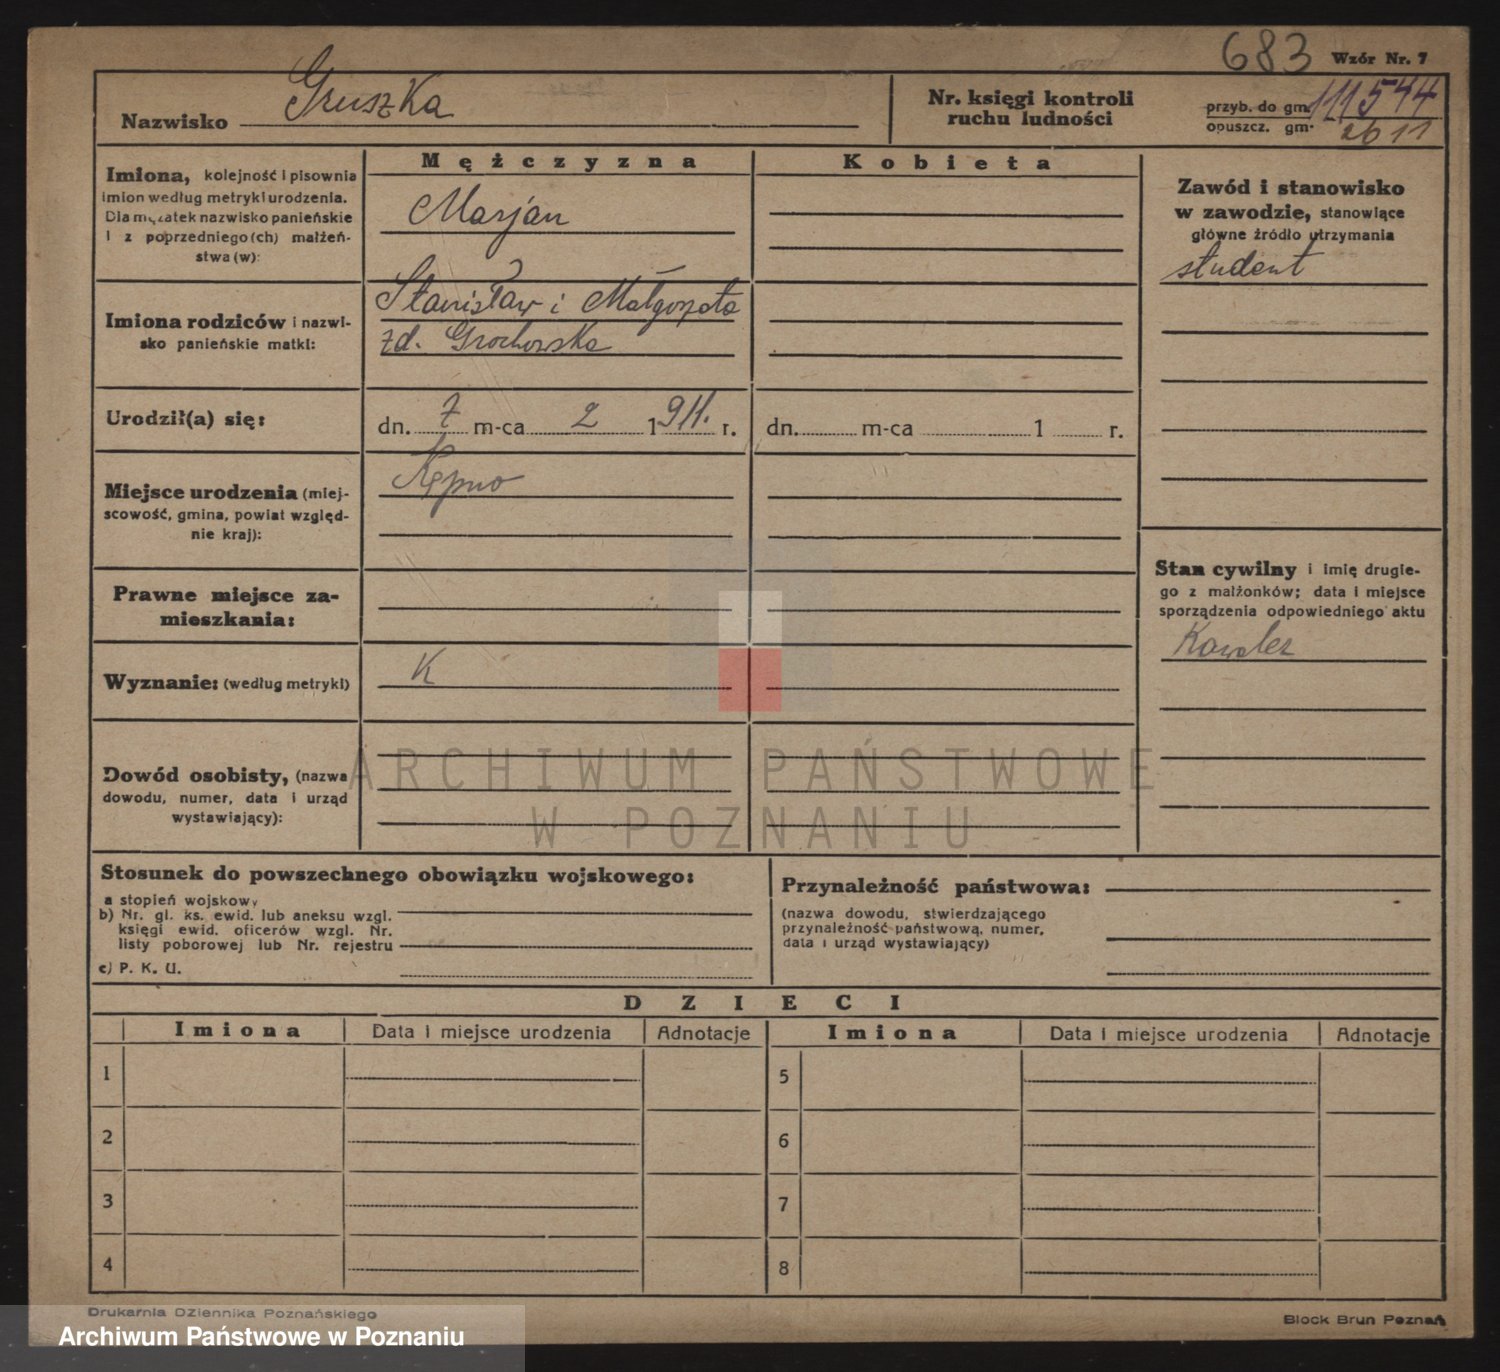 683 Wzór Nr. 7
Nazwisko Gruszka
Nr. księgi kontroli
ruchu ludności
przyb. do gm. 111544
opuszcz. gm. 2611
Imiona, kolejność i pisownia
imion według metryki urodzenia.
Dla mężatek nazwisko panieńskie
i z poprzedniego(ch) małżeń-
stwa(w):
Mężczyzna
Marjan
Kobieta
Zawód i stanowisko
w zawodzie, stanowiące
główne źródło utrzymania
student
Imiona rodziców i nazwi-
sko panieńskie matki:
Stanisław i Małgorzata
zd. Grochowska
Urodził(a) się:
dn. 7 m-ca 2 1911. r.
dn. m-ca 1 r.
Miejsce urodzenia (miej-
scowość, gmina, powiat względ-
nie kraj):
Kępno
Prawne miejsce za-
mieszkania:
Stan cywilny i imię drugie-
go z małżonków; data i miejsce
sporządzenia odpowiedniego aktu
Kawaler
Wyznanie: (według metryki)
K
Dowód osobisty, (nazwa
dowodu, numer, data i urząd
wystawiający):
ARCHIWUM PAŃSTWOWE
W POZNANIU
Stosunek do powszechnego obowiązku wojskowego:
a stopień wojskowy
b) Nr. gl. ks. ewid. lub aneksu wzgl.
księgi ewid. oficerów wzgl. Nr.
listy poborowej lub Nr. rejestru
c) P. K. U.
Przynależność państwowa:
(nazwa dowodu, stwierdzającego
przynależność państwową, numer,
data i urząd wystawiający)
DZIECI
Imiona Data i miejsce urodzenia Adnotacje Imiona Data i miejsce urodzenia Adnotacje
1 5
2 6
3 7
4 8
Drukarnia Dziennika Poznańskiego
Block Brun Poznań
Archiwum Państwowe w Poznaniu